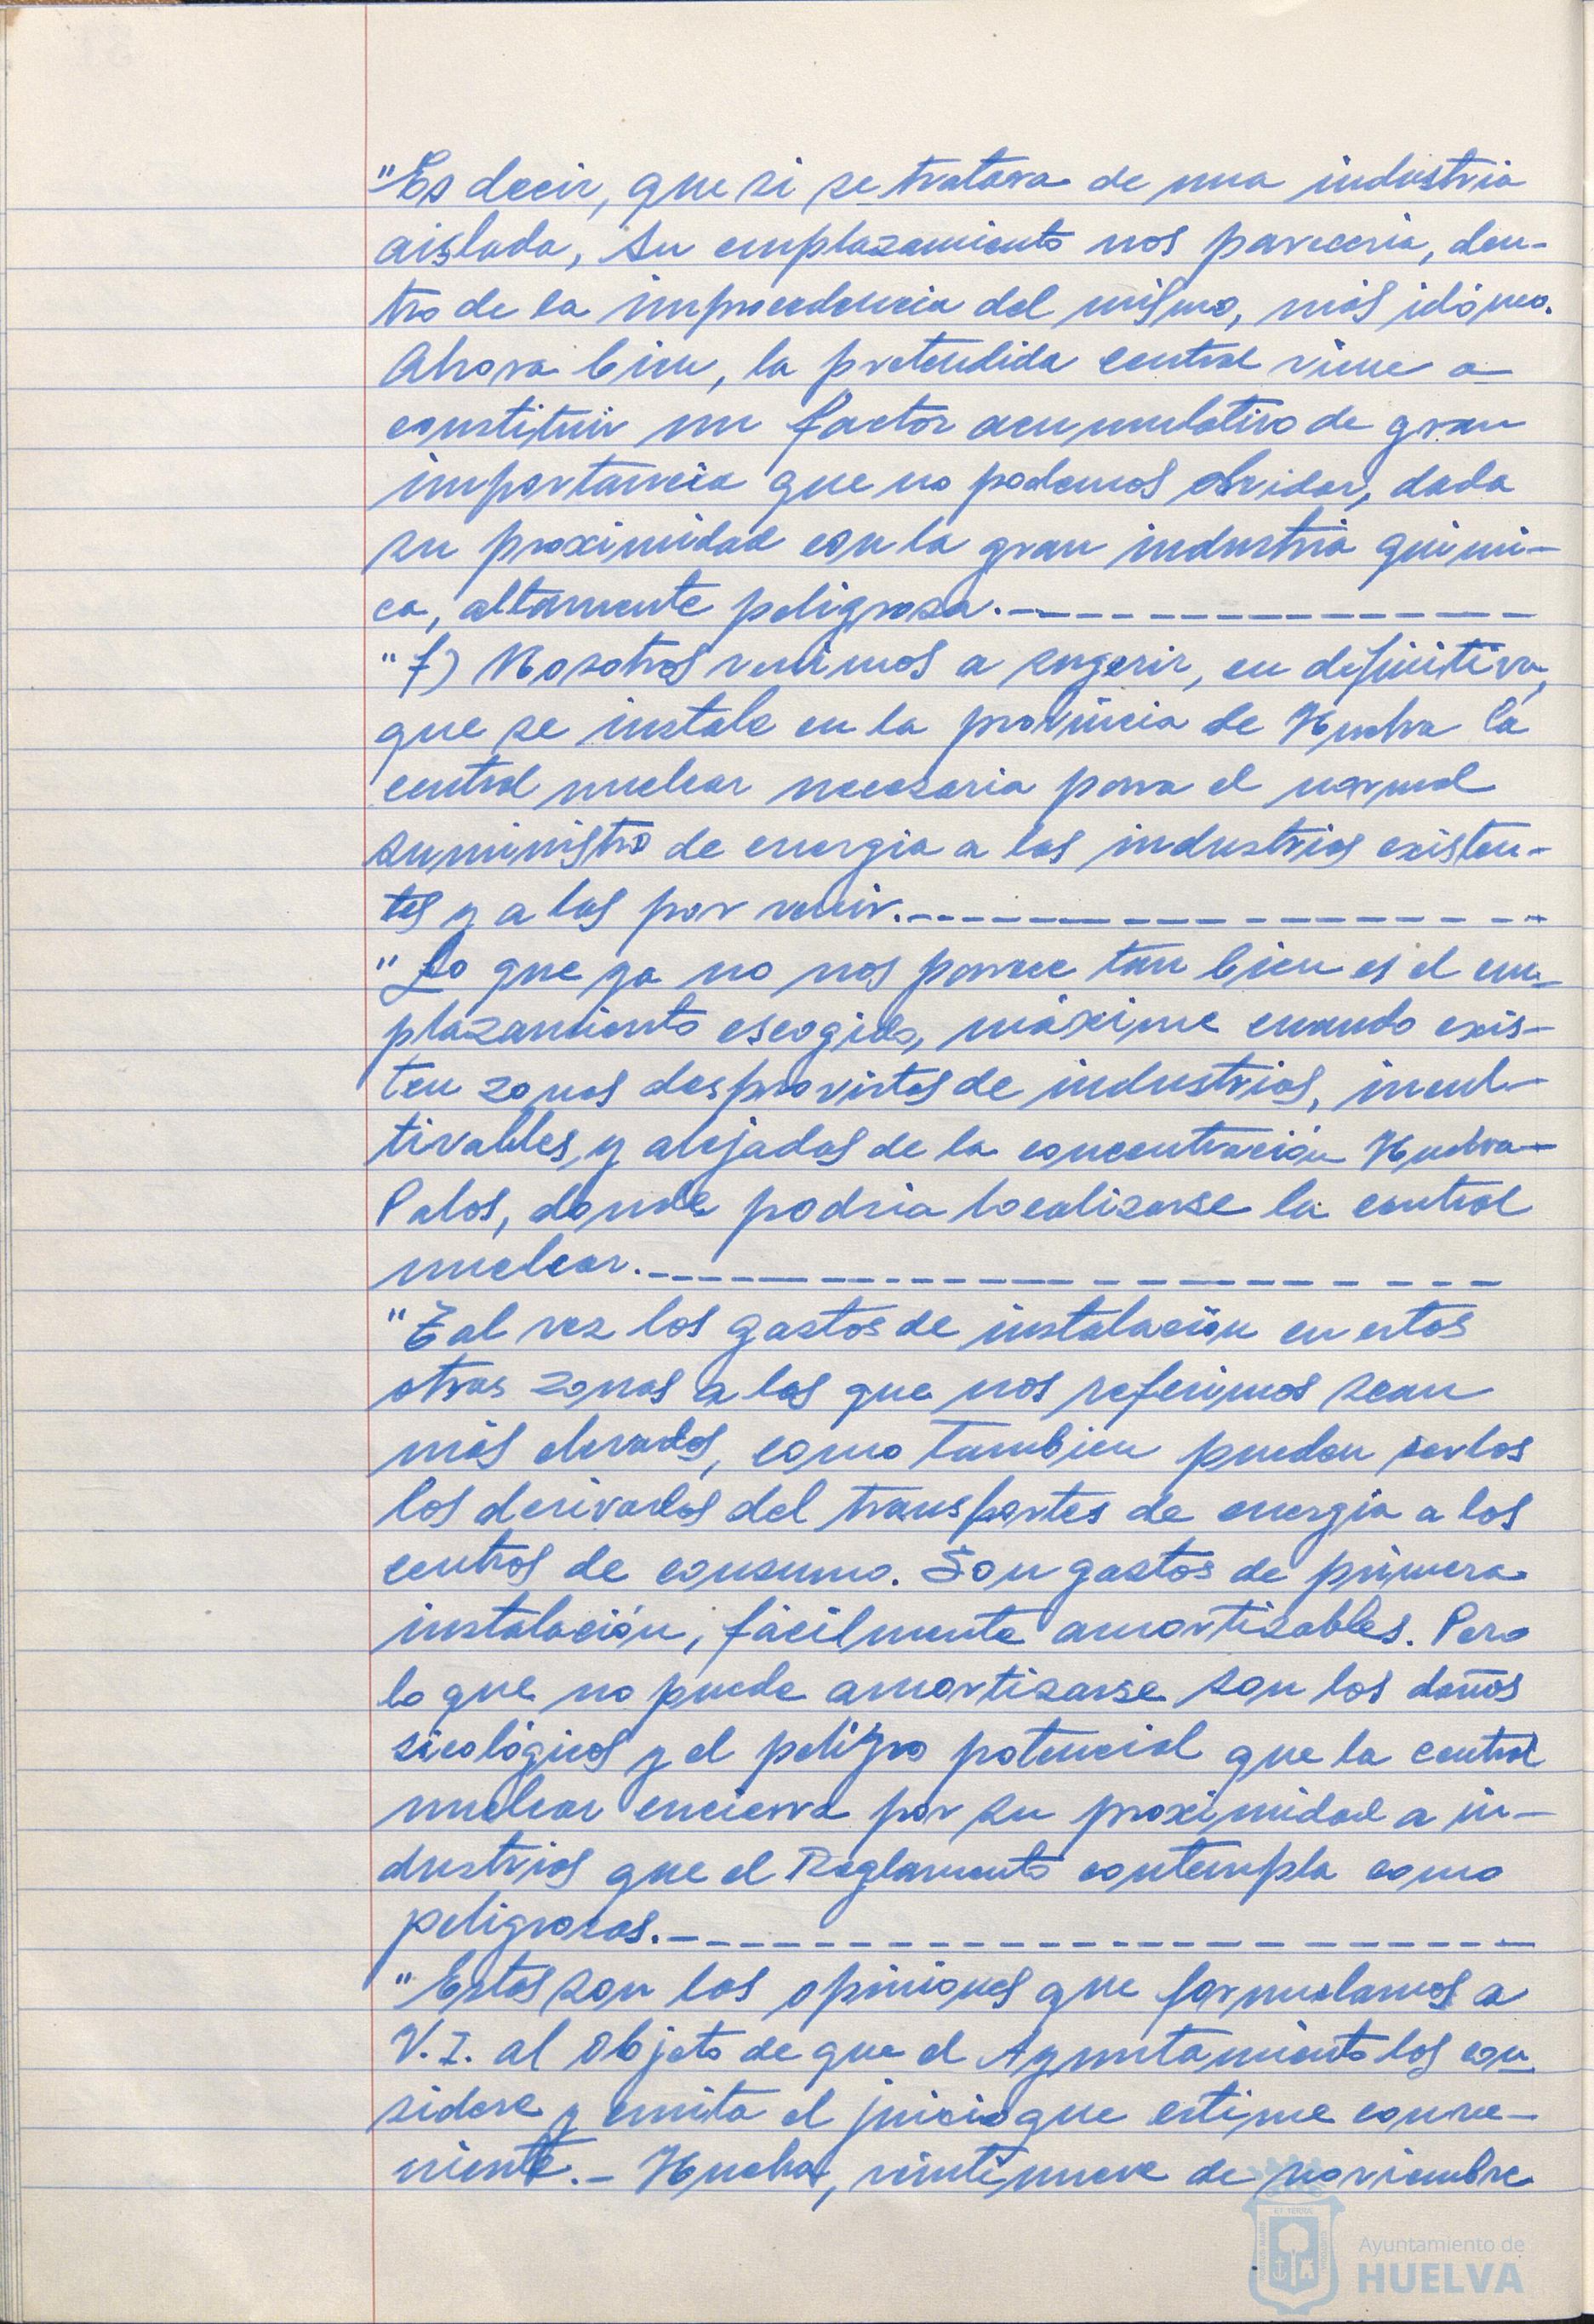 "Es decir, que si se tratara de una industria
aislada, su emplazamiento nos pareceria, den-
tro de la improcedencia del mismo, más idóneo.
Ahora bien, la pretendida central viene a
constituir un factor acumulativo de gran
importancia que no podemos olvidar, dada
su proximidad con la gran industria quimi-
ca, altamente peligrosa.-----------------
"f) Nosotros venimos a sugerir, en definitiva,
que se instale en la provincia de Huelva la
central nuclear necesaria para el normal
suministro de energia a las industrias existen-
tes y a las por venir.------------------
"Lo que ya no nos parece tan bien es el em-
plazamiento escogido, máxime cuando exis-
ten zonas desprovistas de industrias, incul-
tivables, y alejadas de la concentración Huelva-
Palos, donde podria localizarse la central
nuclear.---------------------
"Tal vez los gastos de instalación en estas
otras zonas a las que nos referimos sean
más elevados, como tambien pueden serlos
los derivados del transportes de energia a los
centros de consumo. Son gastos de primera
instalación, fácilmente amortizables. Pero
lo que no puede amortizarse son los daños
sicológicos y el peligro potencial que la central
nuclear encierra por su proximidad a in-
dustrias que el Reglamento contempla como
peligrosas.-----------------------
"Estas son las opiniones que formulamos a
V.I. al objeto de que el Ayuntamiento las con
sidere y emita el juicio que estime conve-
niente.- Huelva, veintinueve de noviembre
Ayuntamiento de
HUELVA